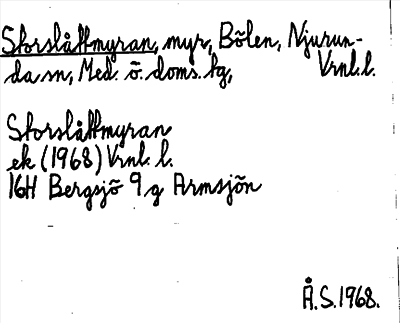 Storslåttmyran, myr, Bölen, Njurun-
da sn, Med. ö. doms. tg, Vrnl. l.
Storslåttmyran
ek (1968) Vrnl. l.
16H Bergsjö 9 g Armsjön
Å.S. 1968.